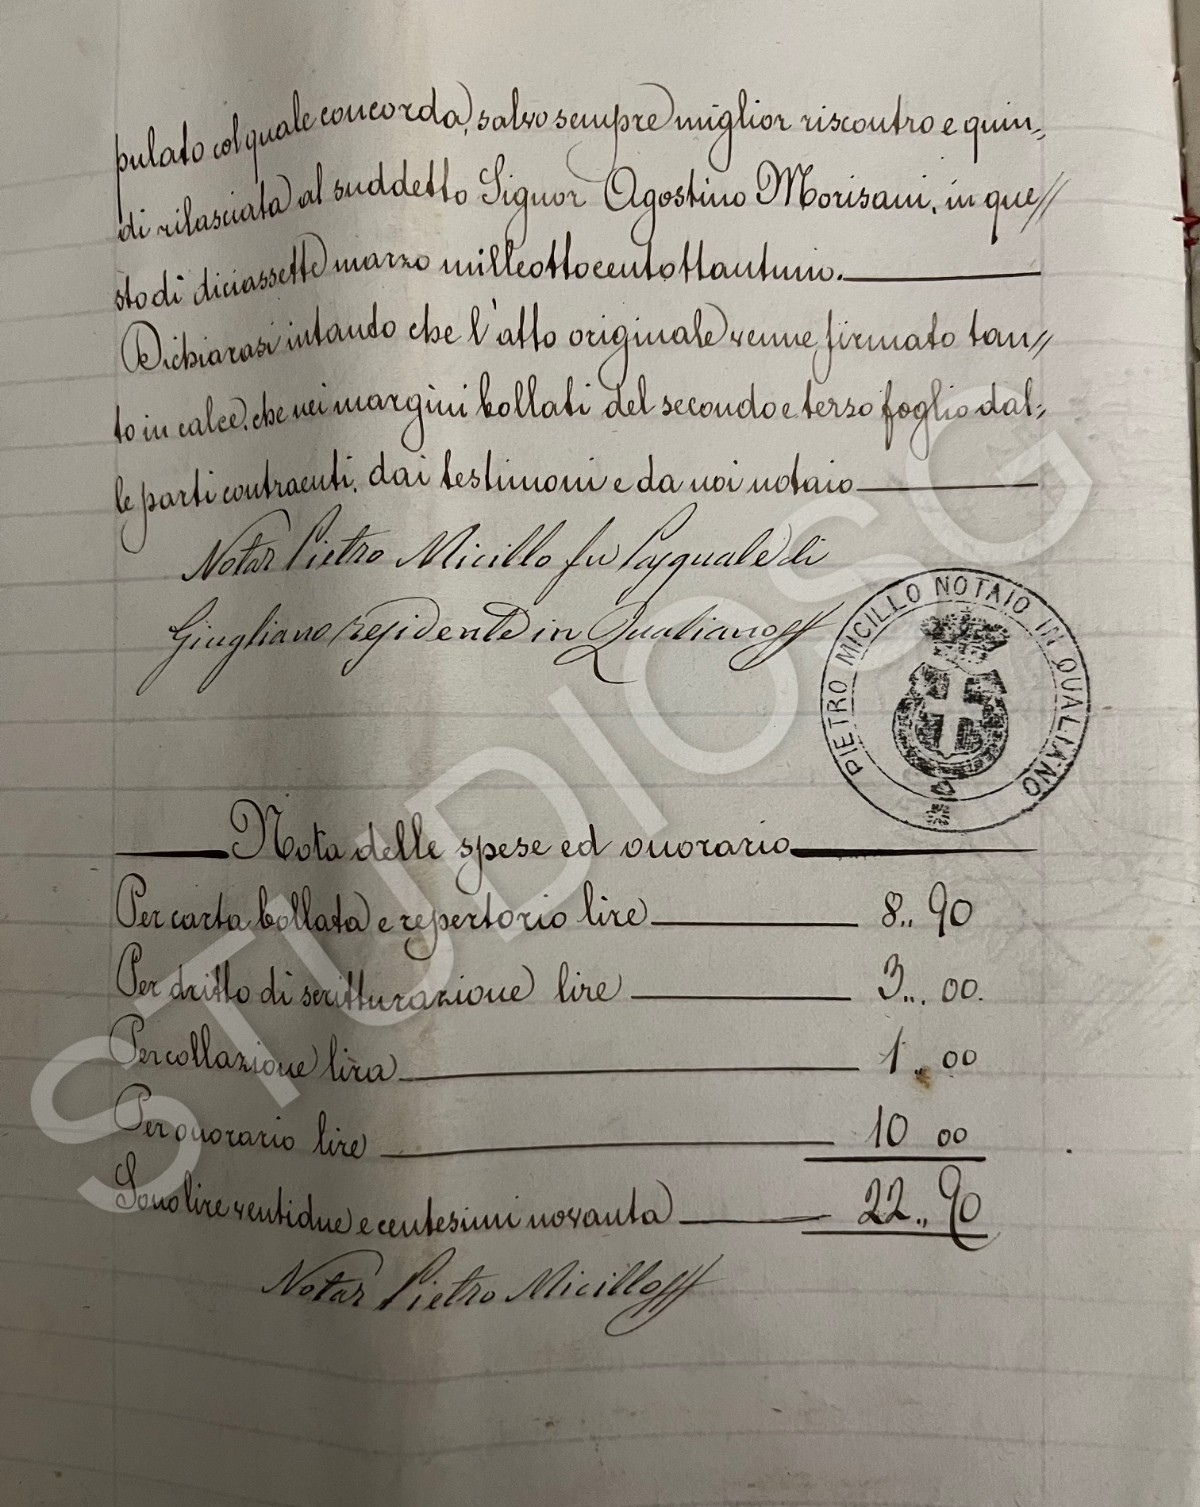 pulato col quale concorda, salvo sempre miglior riscontro e quin„
di rilasciata al suddetto Signor Agostino Morisani, in que//
sto dì diciassette marzo milleottocentottantuno.
Dichiarasi intando che l'atto originale venne firmato tan//
to in calce, che nei margini bollati del secondo e terzo foglio dal„
le parti contraenti, dai testimoni e da noi notaio
Notar Pietro Micillo fu Pasquale di
Giugliano residente in Qualiano
PIETRO MICILLO NOTAIO IN QUALIANO
Nota delle spese ed onorario
Per carta bollata e repertorio lire 8.. 90
Per dritto di scritturazione lire 3... 00.
Per collazione lira 1.. 00
Per onorario lire 10 00
Sono lire ventidue e centesimi novanta 22.. 90
Notar Pietro Micillo
STUDIOSG